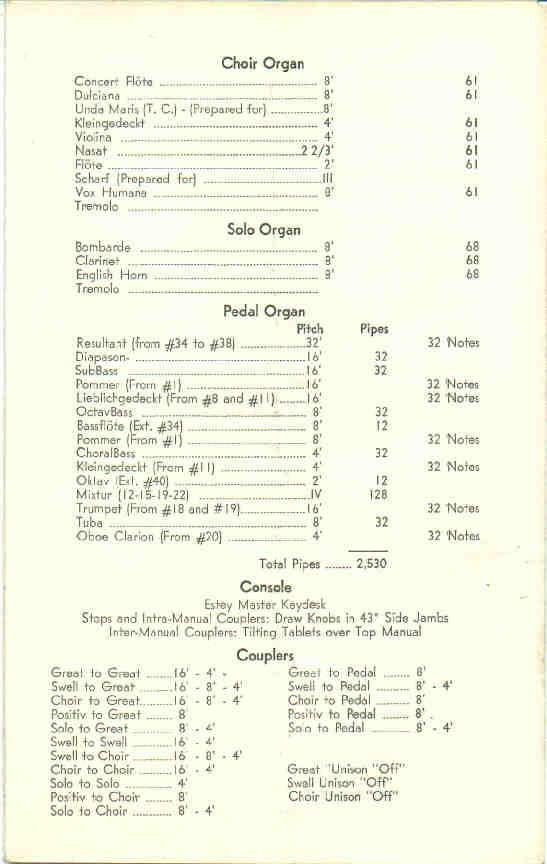 Choir Organ
Concert Flöte 8' 61
Dulciana 8' 61
Unda Maris (T. C.) - (Prepared for) 8'
Kleingedeckt 4' 61
Violina 4' 61
Nasat 2 2/3' 61
Flöte 2' 61
Scharf (Prepared for) III
Vox Humana 8' 61
Tremolo
Solo Organ
Bombarde 8' 68
Clarinet 8' 68
English Horn 8' 68
Tremolo
Pedal Organ
Pitch Pipes
Resultant (from #34 to #38) 32' 32 Notes
Diapason 16' 32
SubBass 16' 32
Pommer (From #1) 16' 32 Notes
Lieblichgedeckt (From #8 and #11) 16' 32 Notes
OctavBass 8' 32
Bassflöte (Ext. #34) 8' 12
Pommer (From #1) 8' 32 Notes
ChoralBass 4' 32
Kleingedeckt (From #11) 4' 32 Notes
Oktav (Ext. #40) 2' 12
Mixtur (12-15-19-22) IV 128
Trumpet (From #18 and #19) 16' 32 Notes
Tuba 8' 32
Oboe Clarion (From #20) 4' 32 Notes
Total Pipes ........ 2,530
Console
Estey Master Keydesk
Stops and Intra-Manual Couplers: Draw Knobs in 43° Side Jambs
Inter-Manual Couplers: Tilting Tablets over Top Manual
Couplers
Great to Great 16' - 4'
Swell to Great 16' - 8' - 4'
Choir to Great 16' - 8' - 4'
Positiv to Great 8'
Solo to Great 8' - 4'
Swell to Swell 16' - 4'
Swell to Choir 16' - 8' - 4'
Choir to Choir 16' - 4'
Solo to Solo 4'
Positiv to Choir 8'
Solo to Choir 8' - 4'
Great to Pedal 8'
Swell to Pedal 8' - 4'
Choir to Pedal 8'
Positiv to Pedal 8'
Solo to Pedal 8' - 4'
Great "Unison "Off"
Swell Unison "Off"
Choir Unison "Off"